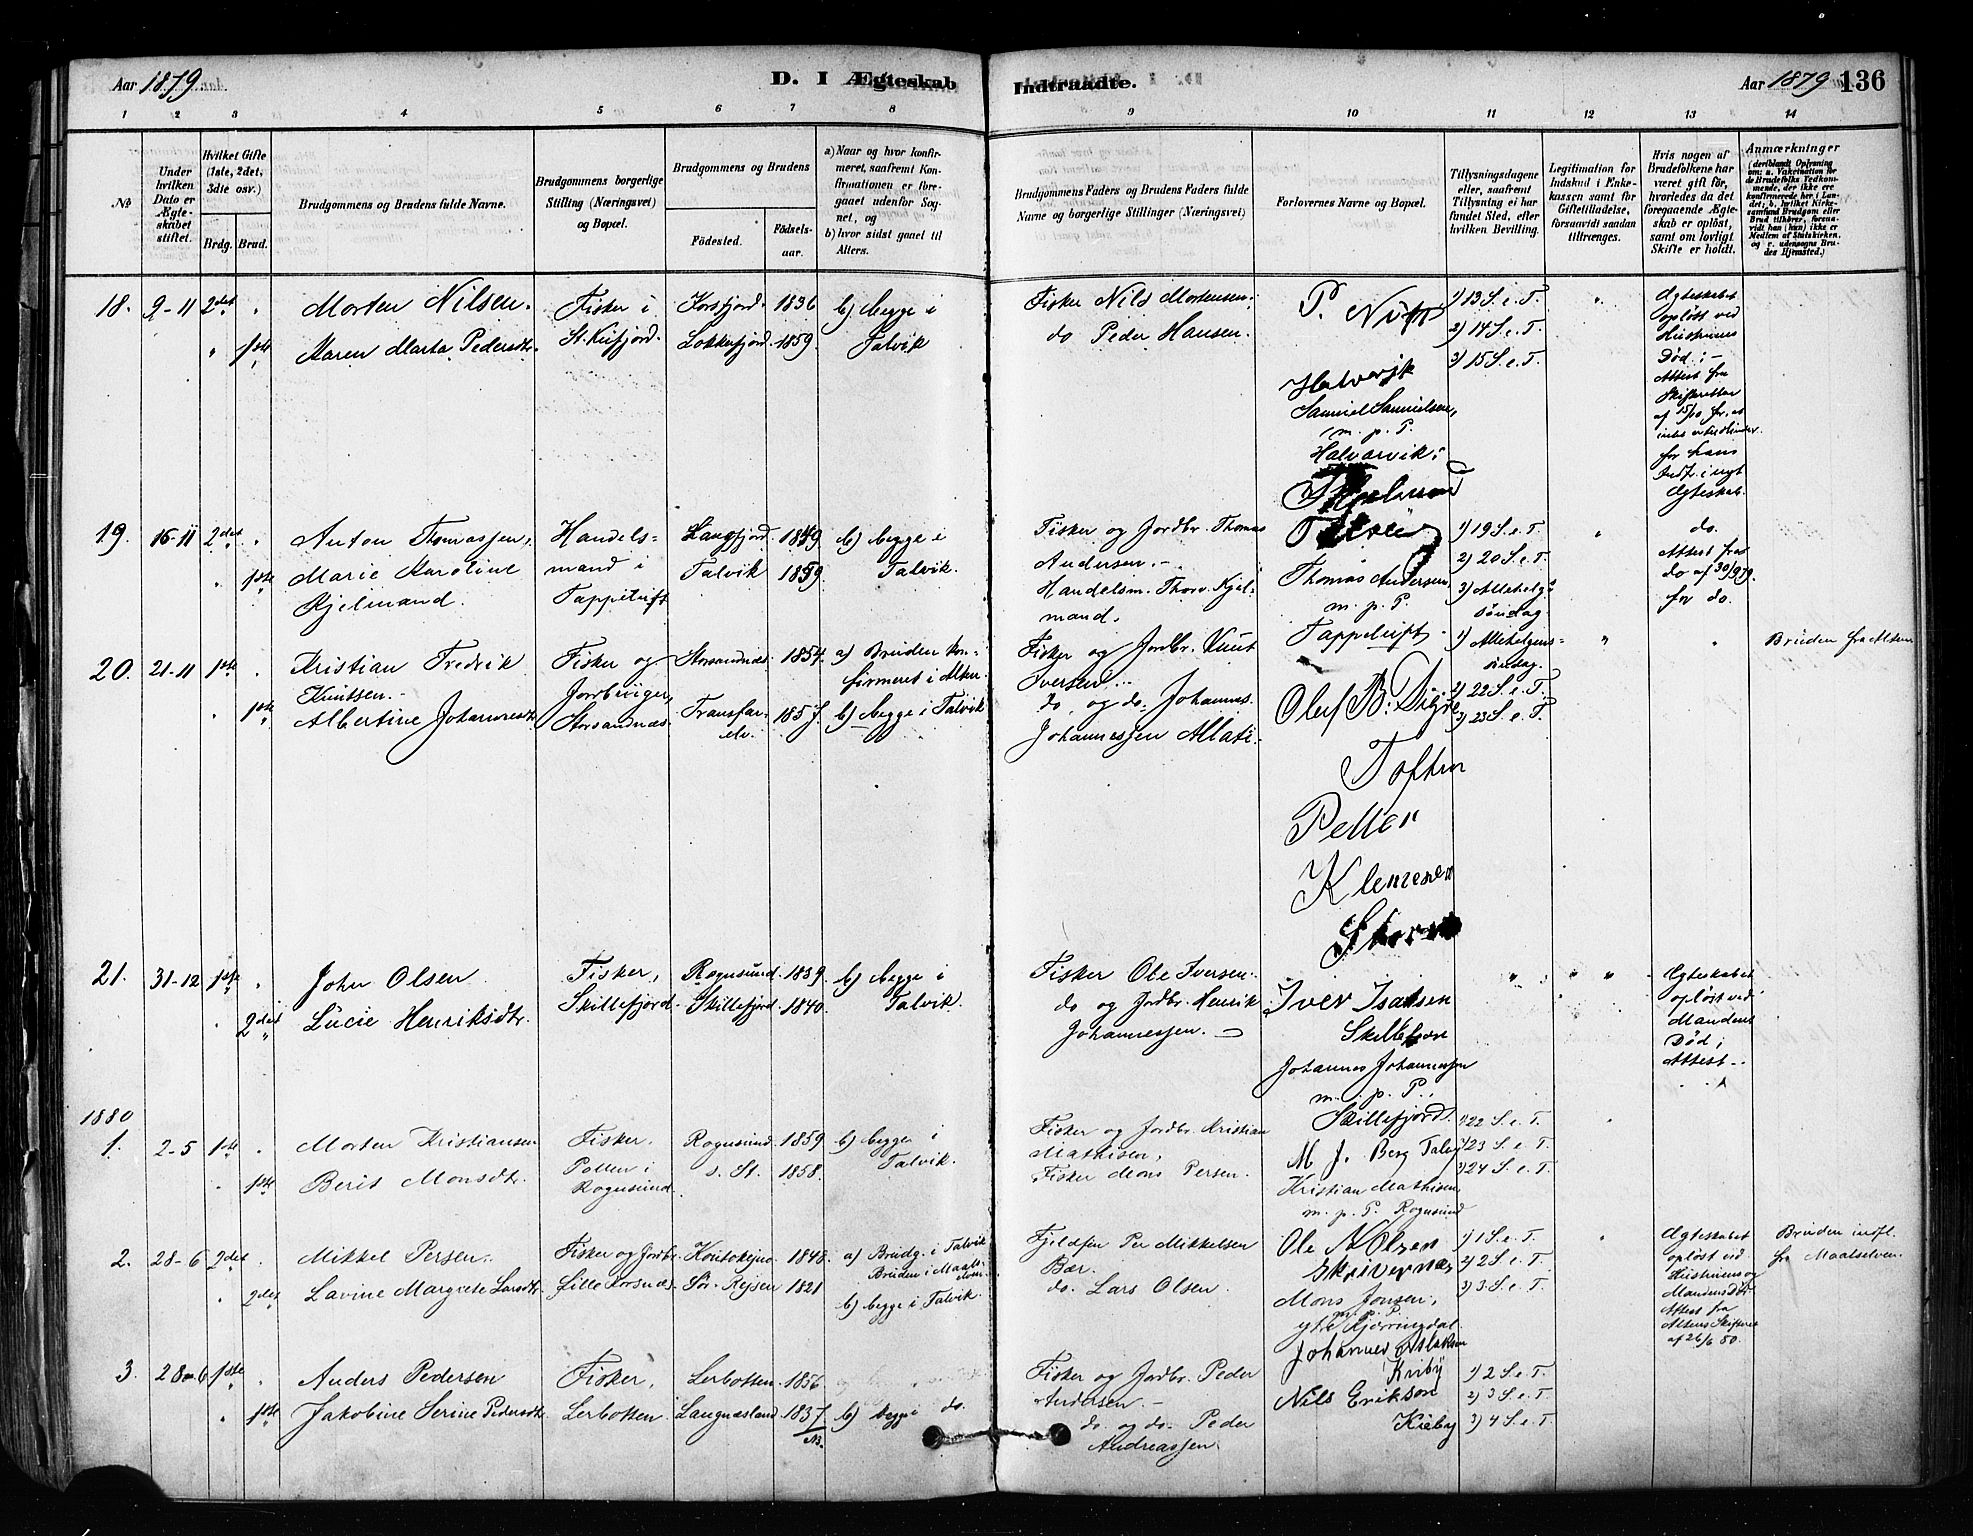 Aar 1879. D. I Ægteskab Indtraadte. Aar 1879 136
1 2 3 4 5 6 7 8 9 10 11 12 13 14
№
Under hvilken Dato er Ægteskabet stiftet.
Hvilket Gifte (1ste, 2det, 3die osv.)
Brdg. Brud.
Brudgommens og Brudens fulde Navne.
Brudgommens borgerlige Stilling (Næringsvei) og Bopæl.
Brudgommens og Brudens
Fødested. Fødselsaar.
a) Naar og hvor konfirmeret, saafremt Konfirmationen er foregaaet udenfor Sognet, og
b) hvor sidst gaaet til Alters.
Brudgommens Faders og Brudens Faders fulde Navne og borgerlige Stillinger (Næringsvei)
Forlovernes Navne og Bopæl.
Tillysningsdagene eller, saafremt Tillysning ei har fundet Sted, efter hvilken Bevilling.
Legitimation for Indskud i Enkekassen samt for Giftetilladelse, forsaavidt saadan tiltrænges.
Hvis nogen af Brudefolkene har været gift før, hvorledes da det foregaaende Ægteskab er opløst, samt om lovligt Skifte er holdt.
Anmærkninger
18. 9-11 2det " Morten Nilsen. Fisker i Korsfjord 1836 b) begge i
" 1ste Karen Marta Pedersdtr. St. Kufjord. Lokkefjord 1859. Talvik
Fisker Nils Mortensen.
do Peder Hansen.
P.
Halvarvik
Samuel Samuelsen,
m. p. P.
Halvarvik.
1) 13 S. e. T.
2) 14 S. e. T.
3) 15 S. e. T.
Ægteskabet
opløst ved
Hustruens
Død: -
Attest fra
Skifteretten
af 15/10 for, at
intet er til Hinder
for hans
Indtr. i nyt
Ægteskab.
19. 16-11 2det " Anton Thomassen, Handels- Langfjord 1849 b) begge i
" 1ste Marie Karoline mand i Talvik 1859. Talvik.
Kjelmand. Tappeluft
Fisker og Jordbr. Thomas
Andersen. -
Handelsm. Thorv. Kjel-
mand.
Thomas Andersen
m. p. P.
Tappeluft
1) 19 S. e. T.
2) 20 S. e. T.
3) Allehelg.
søndag.
do.
Attest fra
do af 30/9 79.
for do.
20. 21-11 1ste " Kristian Fredrik Fisker og Storsandnæs 1854. a) Bruden kon-
Knutsen. - Jordbruger, firmeret i Alten.
" 1ste Albertine Johannesdtr. Storsandnæs Transfar- 1857. b) begge i Talvik
elv.
Fisker og Jordbr. Knut
Iversen. -
do. og do. Johannes
Johannessen Allati-
Oluf B.
Toften
Petter
Klemesen
1) Allehelgens-
søndag.
2) 22 S. e. T.
3) 23 S. e. T.
Bruden fra Alten
21. 31-12 1ste " John Olsen Fisker, Rognsund 1839. b) begge i
" 2det Lucie Henriksdtr. Skillefjord. Skillefjord 1840. Talvik.
Fisker Ole Iversen.
do og Jordbr. Henrik
Johannessen. -
Iver Isaksen
Johannes Johannessen
m. p. P.
Skillefjord.
Ægteskabet
opløst ved
Mandens
Død;
Attest -
1880
1. 2-5 1ste " Morten Kristiansen Fisker. Rognsund 1859 b) begge i
" 1ste Berit Monsdtr. Pollen i s. St. 1858. Talvik.
Rognsund.
Fisker og Jordbr. Kristian
Mathisen,
Fisker Mons Persen.
M J. Berg
Kristian Mathisen,
m. p. P. Rognsund
1) 22 S. e. T.
2) 23 S. e. T.
3) 24 S. e. T.
2. 28-6 2det " Mikkel Persen. Fisker og Jordbr. Koutokejno 1848. a) Brudg. i Talvik
Bruden i Maals-
elven.
" 2det Lavine Margrete Larsdtr. Lille Korsnæs. Sør-Rejsen 1821 b) begge i Talvik.
Fjeldfin Per Mikkelsen
Bær.
do. Lars Olsen.
Ole N Olsen
Mons Jonsen,
m. p. P.
ytre Kjerringdal
1) 1 S. e. T.
2) 2 S. e. T.
3) 3 S. e. T.
Ægteskabet
opløst ved
Hustruens og
Mandens Død
Attest fra
Altens Skifteret
af 26/6 80.
Bruden indfl.
fra Maalselven
3. 28-6 1ste " Anders Pedersen Fisker, Lerbotten 1856
" 1ste Jakobine Serine Pedersdtr. Lerbotten. Langnæsland 1837. b) begge do.
Fisker og Jordbr. Peder
Andersen. -
do og do. Peder
Andreassen.
Johannes
Nils Erikson
1) 2 S. e. T.
2) 3 S. e. T.
3) 4 S. e. T.